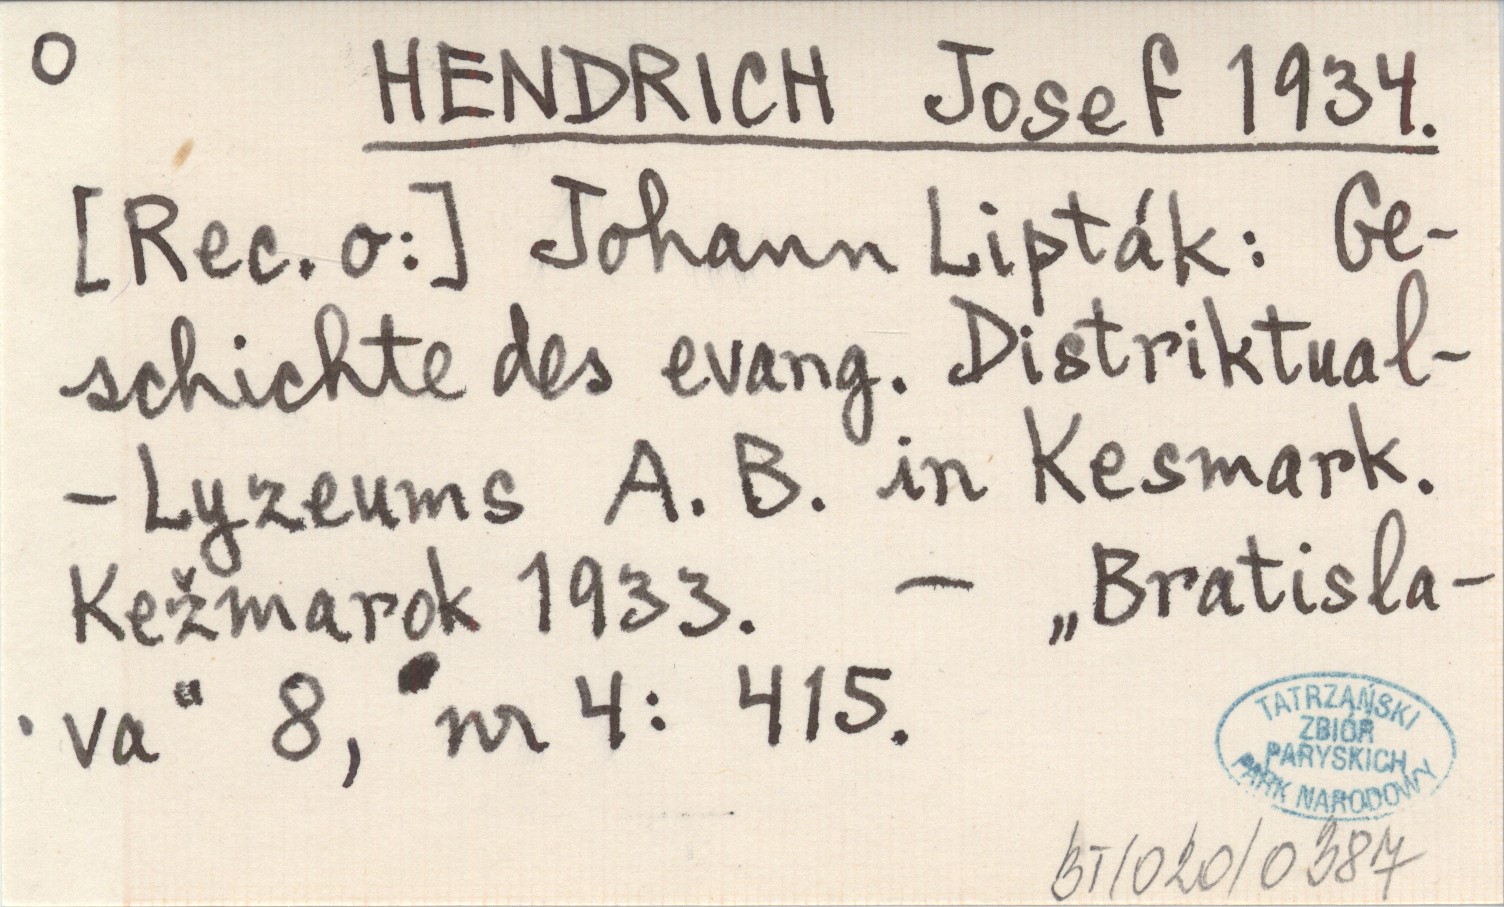 O HENDRICH Josef 1934.
[Rec. o:] Johann Lipták: Ge-
schichte des evang. Distriktual-
-Lyzeums A. B. in Kesmark.
Kežmarok 1933. — „Bratisla-
va" 8, nr 4: 415.
TATRZAŃSKI
ZBIÓR
PARYSKICH
PARK NARODOWY
BT/020/0387